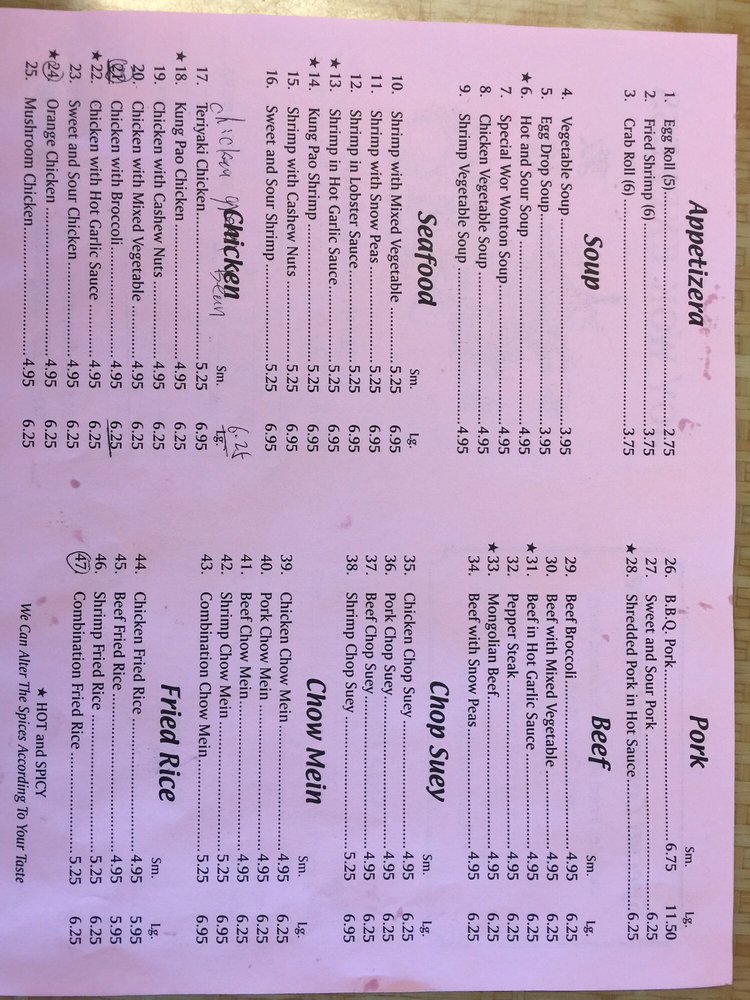 Appetizera
1. Egg Roll (5)........2.75
2. Fried Shrimp (6)........3.75
3. Crab Roll (6)........3.75
Soup
4. Vegetable Soup........3.95
5. Egg Drop Soup........3.95
★6. Hot and Sour Soup........4.95
7. Special Wor Wonton Soup........4.95
8. Chicken Vegetable Soup........4.95
9. Shrimp Vegetable Soup........4.95
Seafood
Sm. Lg.
10. Shrimp with Mixed Vegetable........5.25 6.95
11. Shrimp with Snow Peas........5.25 6.95
12. Shrimp in Lobster Sauce........5.25 6.95
★13. Shrimp in Hot Garlic Sauce........5.25 6.95
★14. Kung Pao Shrimp........5.25 6.95
15. Shrimp with Cashew Nuts........5.25 6.95
16. Sweet and Sour Shrimp........5.25 6.95
Chicken
chicken green bean 6.25
Sm. Lg.
17. Teriyaki Chicken........5.25 6.95
★18. Kung Pao Chicken........4.95 6.25
19. Chicken with Cashew Nuts........4.95 6.25
20. Chicken with Mixed Vegetable........4.95 6.25
21. Chicken with Broccoli........4.95 6.25
★22. Chicken with Hot Garlic Sauce........4.95 6.25
23. Sweet and Sour Chicken........4.95 6.25
★24. Orange Chicken........4.95 6.25
25. Mushroom Chicken........4.95 6.25
Pork
Sm. Lg.
26. B.B.Q. Pork........6.75 11.50
27. Sweet and Sour Pork........6.25
★28. Shredded Pork in Hot Sauce........6.25
Beef
Sm. Lg.
29. Beef Broccoli........4.95 6.25
30. Beef with Mixed Vegetable........4.95 6.25
★31. Beef in Hot Garlic Sauce........4.95 6.25
32. Pepper Steak........4.95 6.25
★33. Mongolian Beef........4.95 6.25
34. Beef with Snow Peas........4.95 6.25
Chop Suey
Sm. Lg.
35. Chicken Chop Suey........4.95 6.25
36. Pork Chop Suey........4.95 6.25
37. Beef Chop Suey........4.95 6.25
38. Shrimp Chop Suey........5.25 6.95
Chow Mein
Sm. Lg.
39. Chicken Chow Mein........4.95 6.25
40. Pork Chow Mein........4.95 6.25
41. Beef Chow Mein........4.95 6.25
42. Shrimp Chow Mein........5.25 6.95
43. Combination Chow Mein........5.25 6.95
Fried Rice
Sm. Lg.
44. Chicken Fried Rice........4.95 5.95
45. Beef Fried Rice........4.95 5.95
46. Shrimp Fried Rice........5.25 6.25
47. Combination Fried Rice........5.25 6.25
★ HOT and SPICY
We Can Alter The Spices According To Your Taste